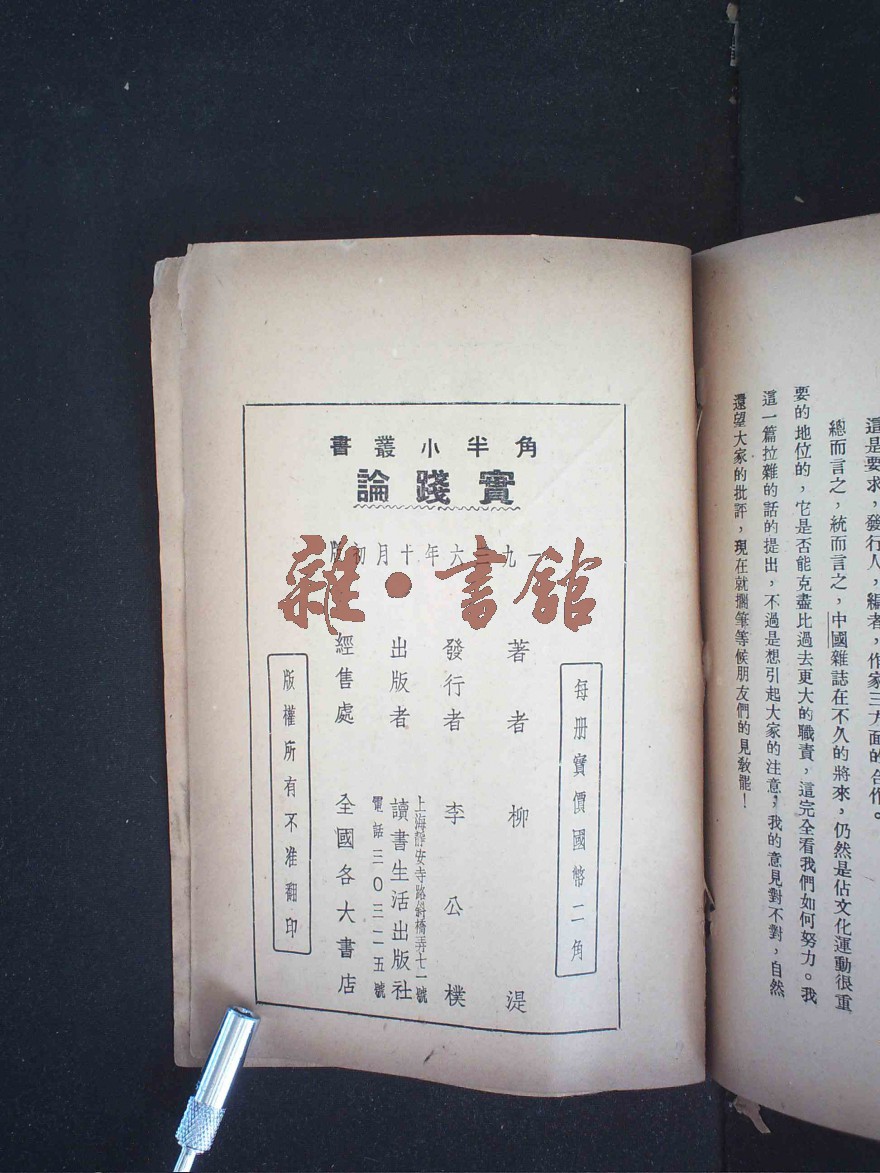 這是要求，發行人，編者，作家三方面的合作。
總而言之，統而言之，中國雜誌在不久的將來，仍然是佔文化運動很重
要的地位的，它是否能克盡比過去更大的職責，這完全看我們如何努力。我
這一篇拉雜的話的提出，不過是想引起大家的注意，我的意見對不對，自然
還望大家的批評，現在就擱筆等候朋友們的見敎罷！
角半小叢書
實踐論
一九三六年十月初版
雜·書館
每册實價國幣二角
著者 柳湜
發行者 李公樸
出版者 讀書生活出版社
上海靜安寺路斜橋弄七一號
電話三〇三二五號
經售處 全國各大書店
版權所有不准翻印